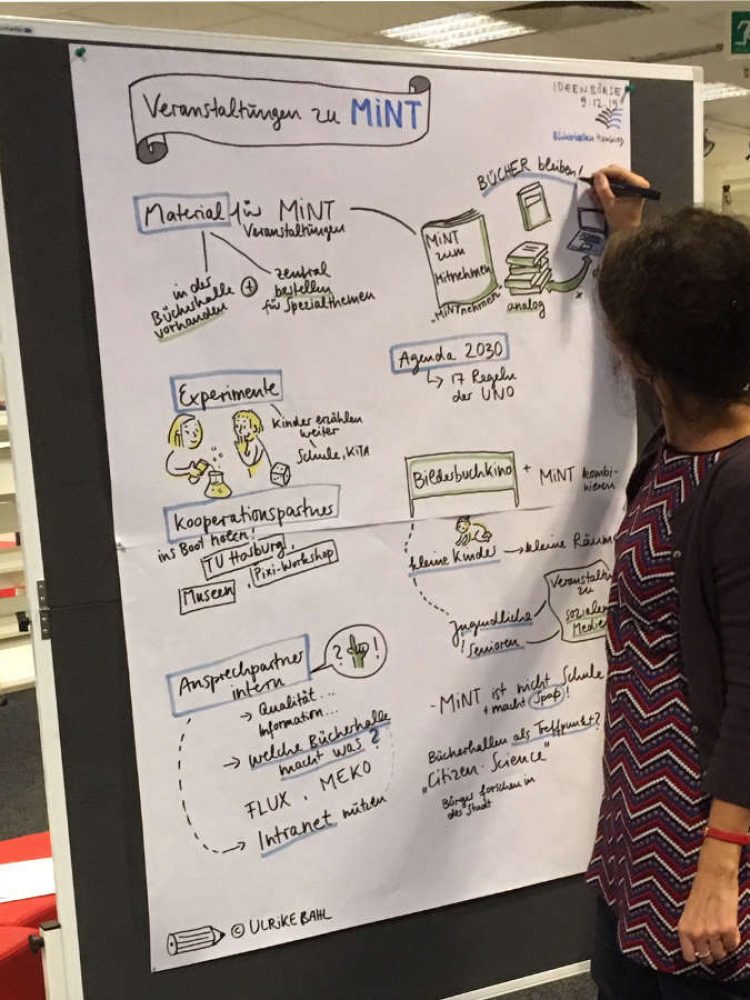 Veranstaltungen zu MiNT
IDEENBÖRSE
9.12.19
Bücherhallen Hamburg
BÜCHER bleiben!
Material für MiNT
Veranstaltungen
in der
Bücherhalle
vorhanden
+
zentral
bestellen
für Spezialthemen
MiNT
zum
Mitnehmen
"MiNTnehmen"
analog
Agenda 2030
17 Regeln
der UNO
Experimente
Kinder erzählen
weiter
Schule, KiTA
Bilderbuchkino + MiNT kombi-
nieren
Kooperationspartner
ins Boot holen!
TU Harburg,
Museen, Pixi-Workshop
kleine Kinder → kleine Räume
Jugendliche
! Senioren
Veranstaltung
zu
sozialen
Medien
Ansprechpartner
intern
? !
→ Qualität...
Information...
→ welche Bücherhalle
macht was?
FLUX, MEKO
Intranet nützen
- MiNT ist nicht Schule
+ macht Spaß!
Bücherhallen als Treffpunkt?
"Citizen-Science"
Bürger forschen in
der Stadt
© ULRiKE BAHL